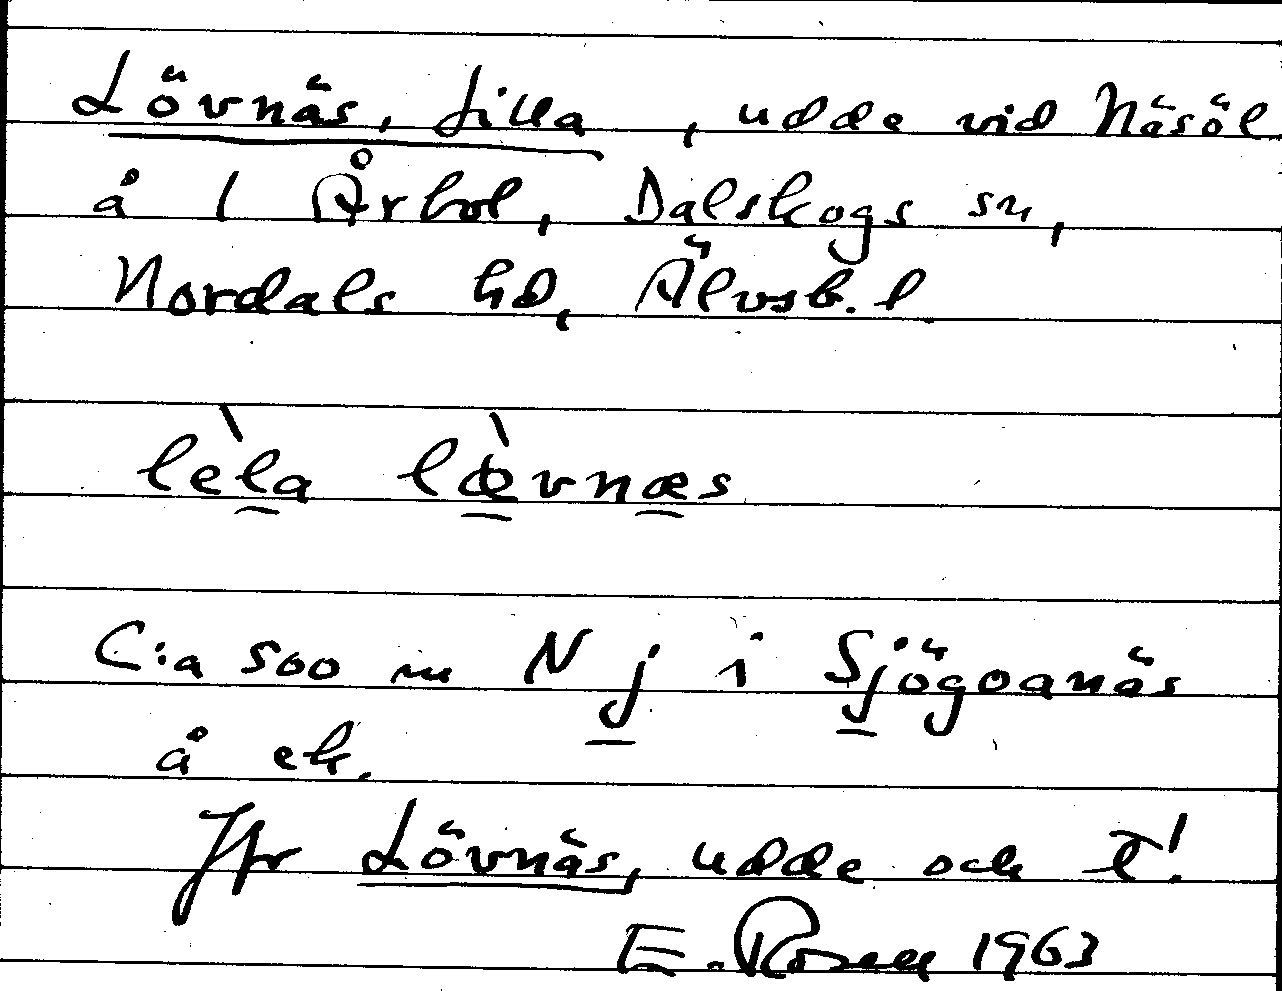 Lövnäs, Lilla, udde vid Näsöl
å 1 Årbol, Dalskogs sn,
Nordals hd, Älvsb. l.
lèla lœ̀vnæs
C:a 500 m N j i Sjögoanäs
å ek.
Jfr Lövnäs, udde och T!
E. Rosell 1963